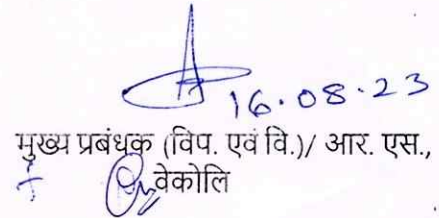 16.08.23
मुख्य प्रबंधक (विप. एवं वि.)/ आर. एस.,
वेकोलि